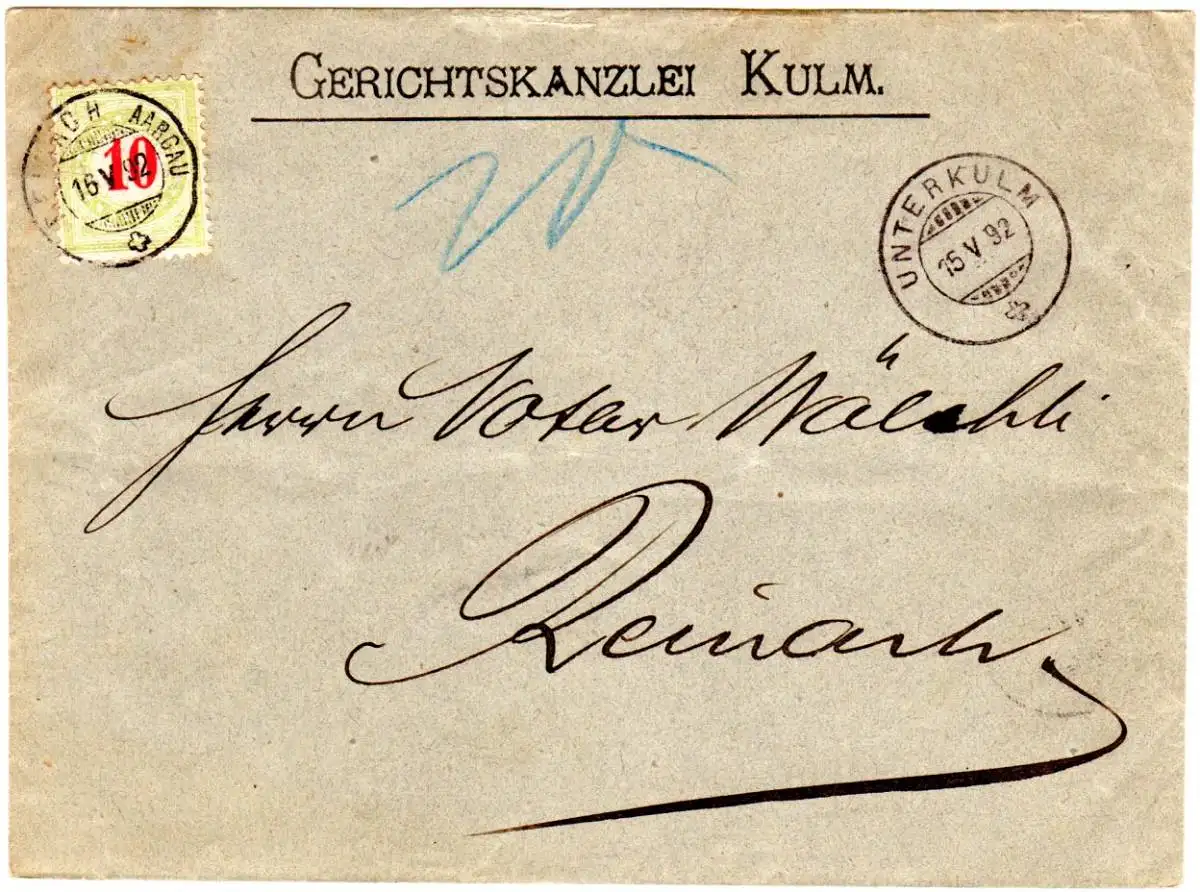 GERICHTSKANZLEI KULM.
10
AARGAU
16 V 92
UNTERKULM
15 V 92
Herrn Notar Wälchli
Reinach.